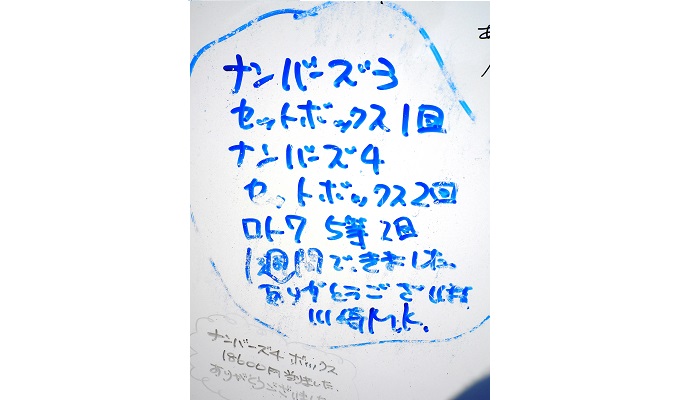 ナンバーズ3
セットボックス1回
ナンバーズ4
セットボックス2回
ロト7 5等 2回
1週間できました
ありがとうござい
川崎M.K.
ナンバーズ4 ボックス
18600円 当りました
ありがとうございました
あ